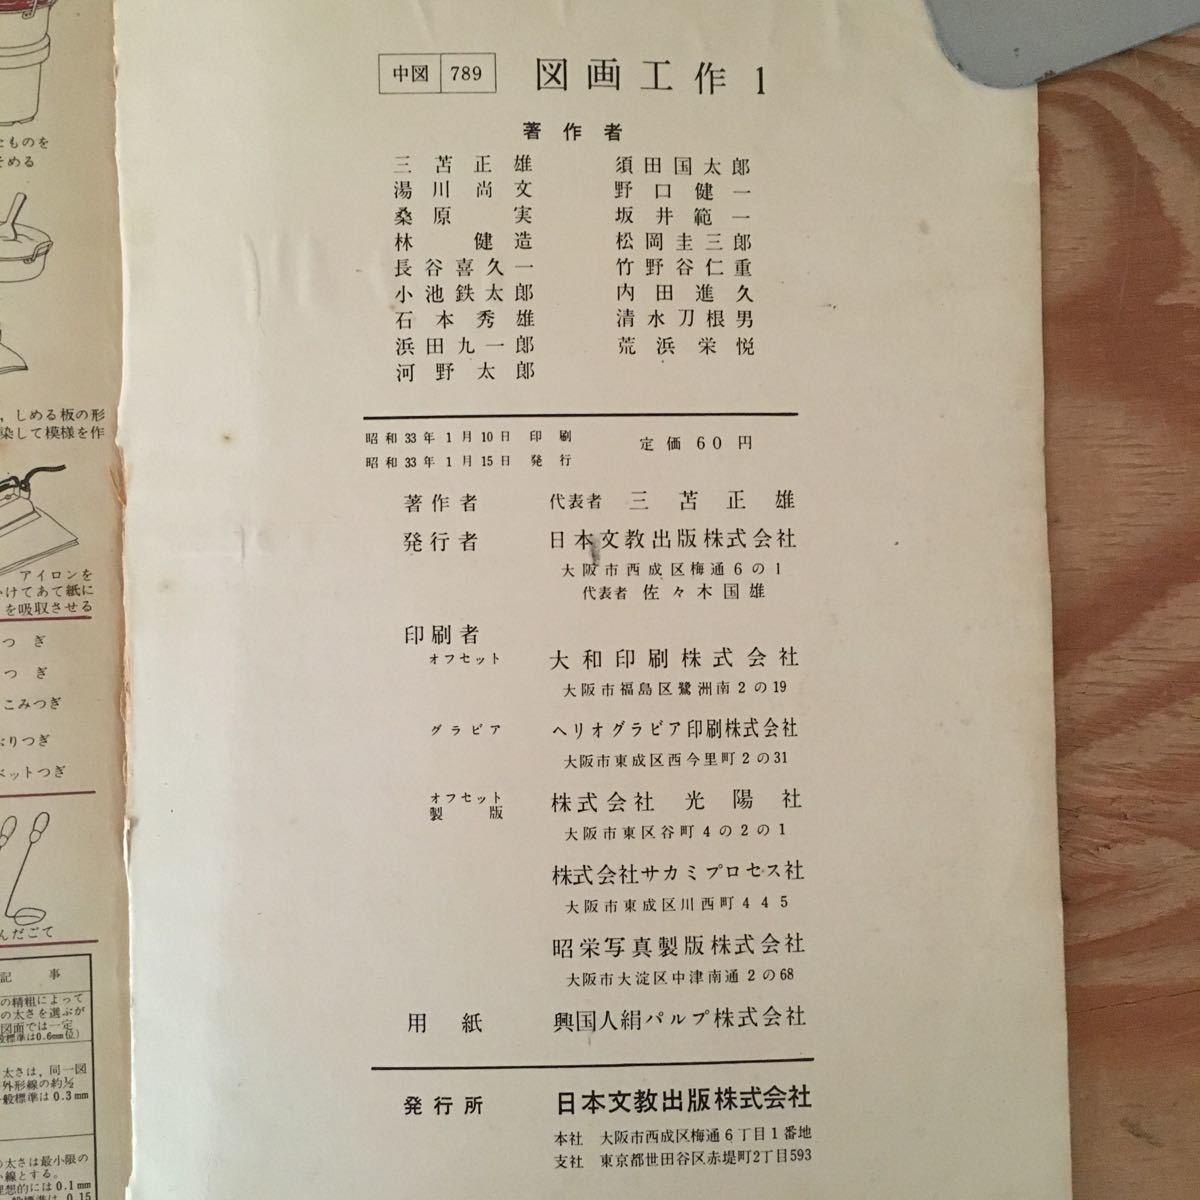 中図 789 図画工作 1
著作者
三苫正雄 須田国太郎
湯川尚文 野口健一
桑原実 坂井範一
林健造 松岡圭三郎
長谷喜久一 竹野谷仁重
小池鉄太郎 内田進久
石本秀雄 清水刀根男
浜田九一郎 荒浜栄悦
河野太郎
昭和33年1月10日 印刷
昭和33年1月15日 発行
定価60円
著作者 代表者 三苫正雄
発行者 日本文教出版株式会社
大阪市西成区梅通6の1
代表者 佐々木国雄
印刷者
オフセット 大和印刷株式会社
大阪市福島区鷺洲南2の19
グラビア ヘリオグラビア印刷株式会社
大阪市東成区西今里町2の31
オフセット製版 株式会社 光陽社
大阪市東区谷町4の2の1
株式会社サカミプロセス社
大阪市東成区川西町445
昭栄写真製版株式会社
大阪市大淀区中津南通2の68
用紙 興国人絹パルプ株式会社
発行所 日本文教出版株式会社
本社 大阪市西成区梅通6丁目1番地
支社 東京都世田谷区赤堤町2丁目593
たものを
そめる
，しめる板の形
染して模様を作
アイロンを
かけてあて紙に
を吸収させる
つぎ
つぎ
こみつぎ
ぶりつぎ
ベットつぎ
んだごて
記事
の精粗によって
の太さを選ぶが
図面では一定
般標準は0.6mm位)
太さは，同一図
外形線の約½
般標準は0.3mm
の太さは最小限の
い線とする。
理想的には0.1mm
般標準は0.15